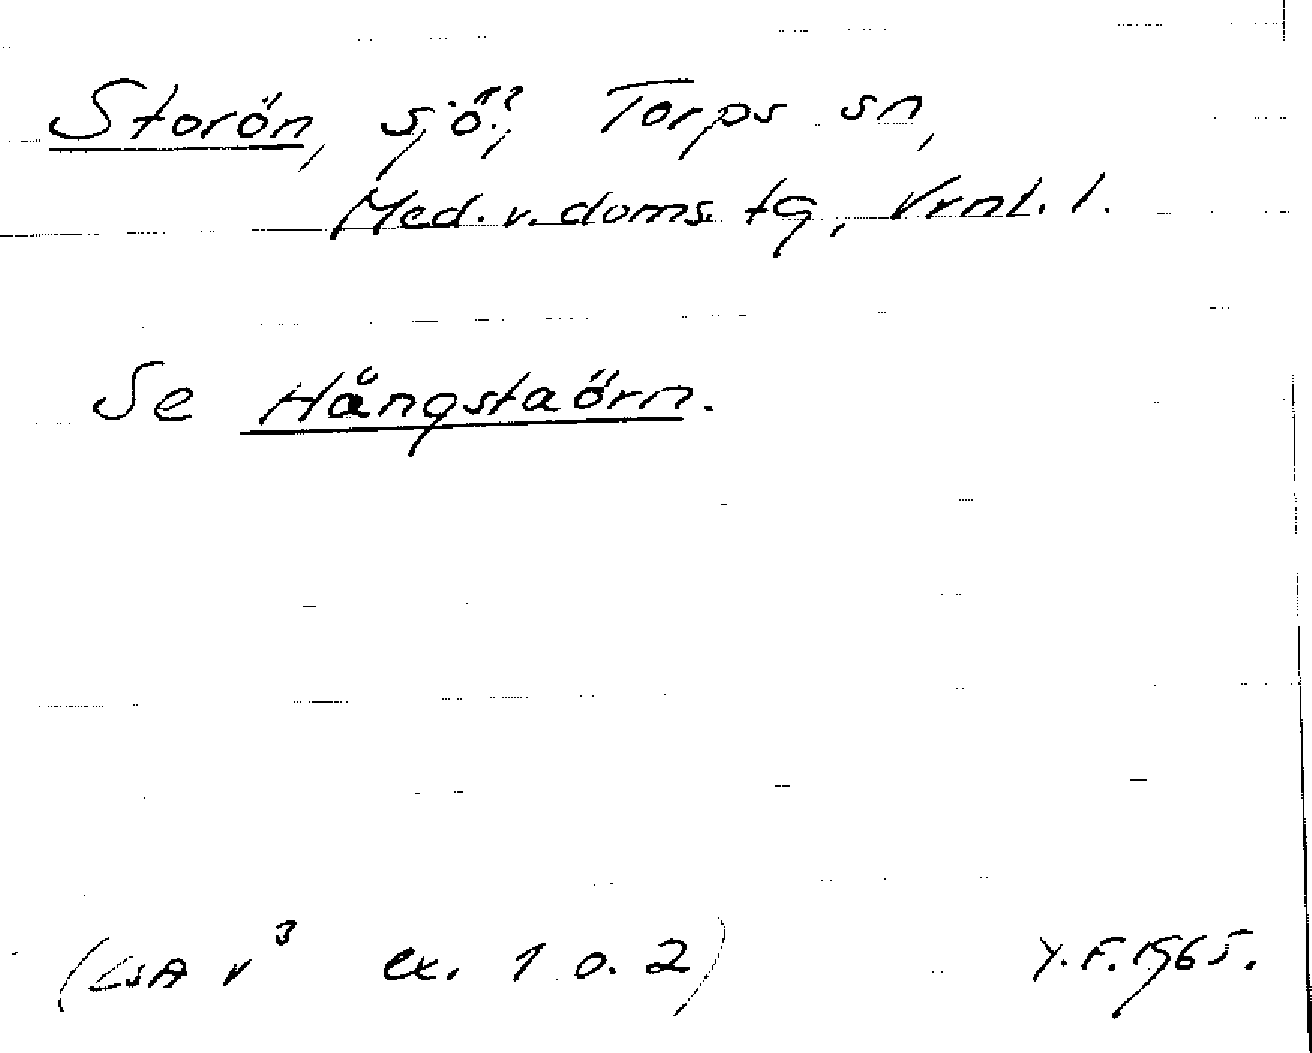 Storön, sjö?, Torps sn,
Med. v. doms. tg, Vrnl. l.
Se Hångstaörn.
(LSA v³ ex. 1 o. 2) Y.F. 1965.